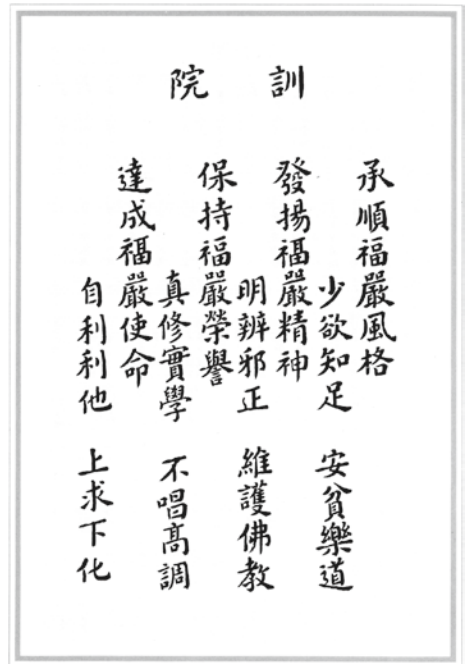 院訓
承順福嚴風格
少欲知足 安貧樂道
發揚福嚴精神
明辨邪正 維護佛教
保持福嚴榮譽
真修實學 不唱高調
達成福嚴使命
自利利他 上求下化